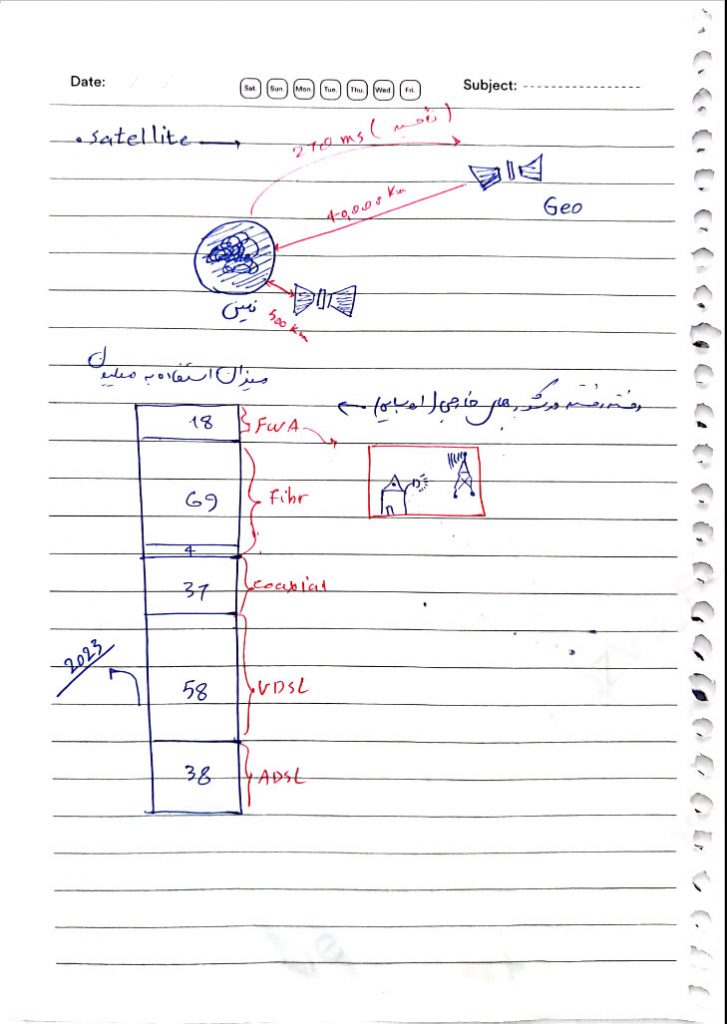 Date:
Sat. Sun Mon. Tue. Thu. Wed Fri.
Subject:
satellite
270 ms (تأخیر)
40,000 Km
Geo
زمین
500 Km
میزان استفاده به میلیون
رفته رفته در کشور های خارجی (اروپایی)
18
FWA
69
Fibr
4
37
coaxial
2023
58
VDSL
38
ADSL